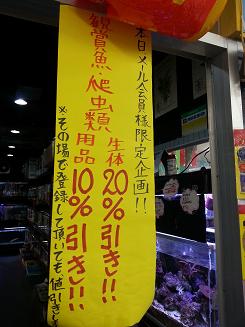 本日メール会員様限定企画!!
観賞魚・爬虫類
生体20%引き!!
用品10%引き!!
※その場で登録して頂いても、値引きし